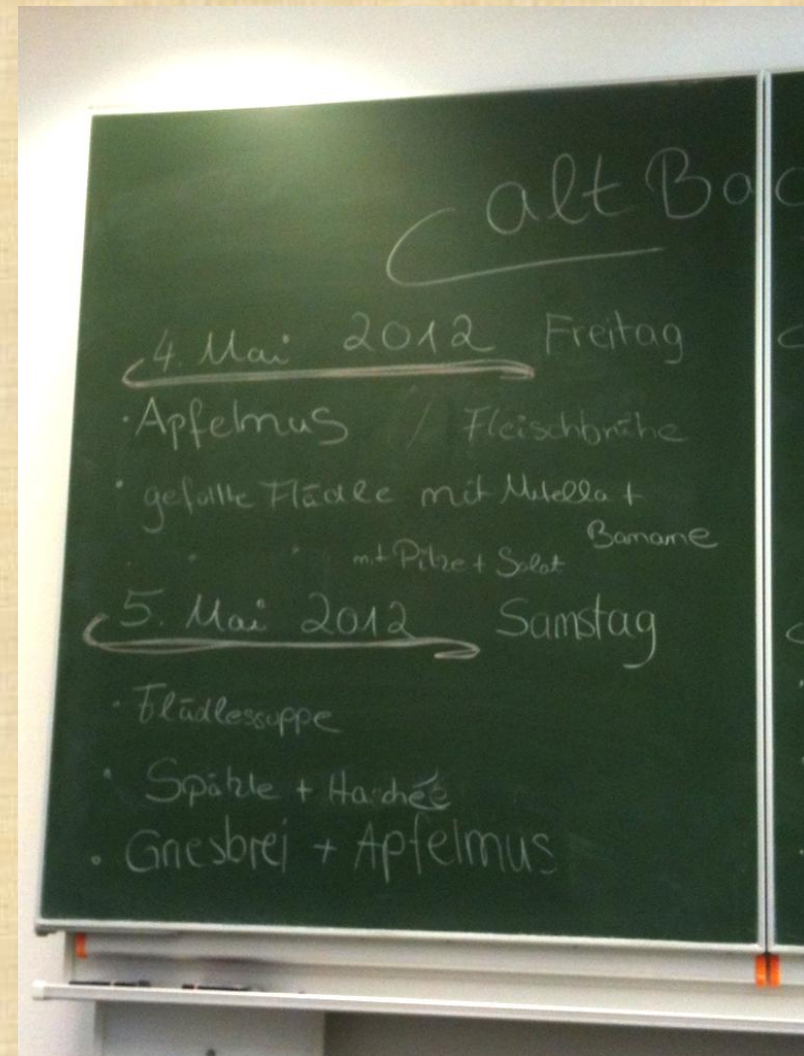 alt Bac
4. Mai 2012 Freitag
· Apfelmus / Fleischbrühe
· gefüllte Flädle mit Nutella +
Banane
" " " mit Pilze + Salat
5. Mai 2012 Samstag
· Flädlessuppe
· Spätzle + Haschée
· Griesbrei + Apfelmus